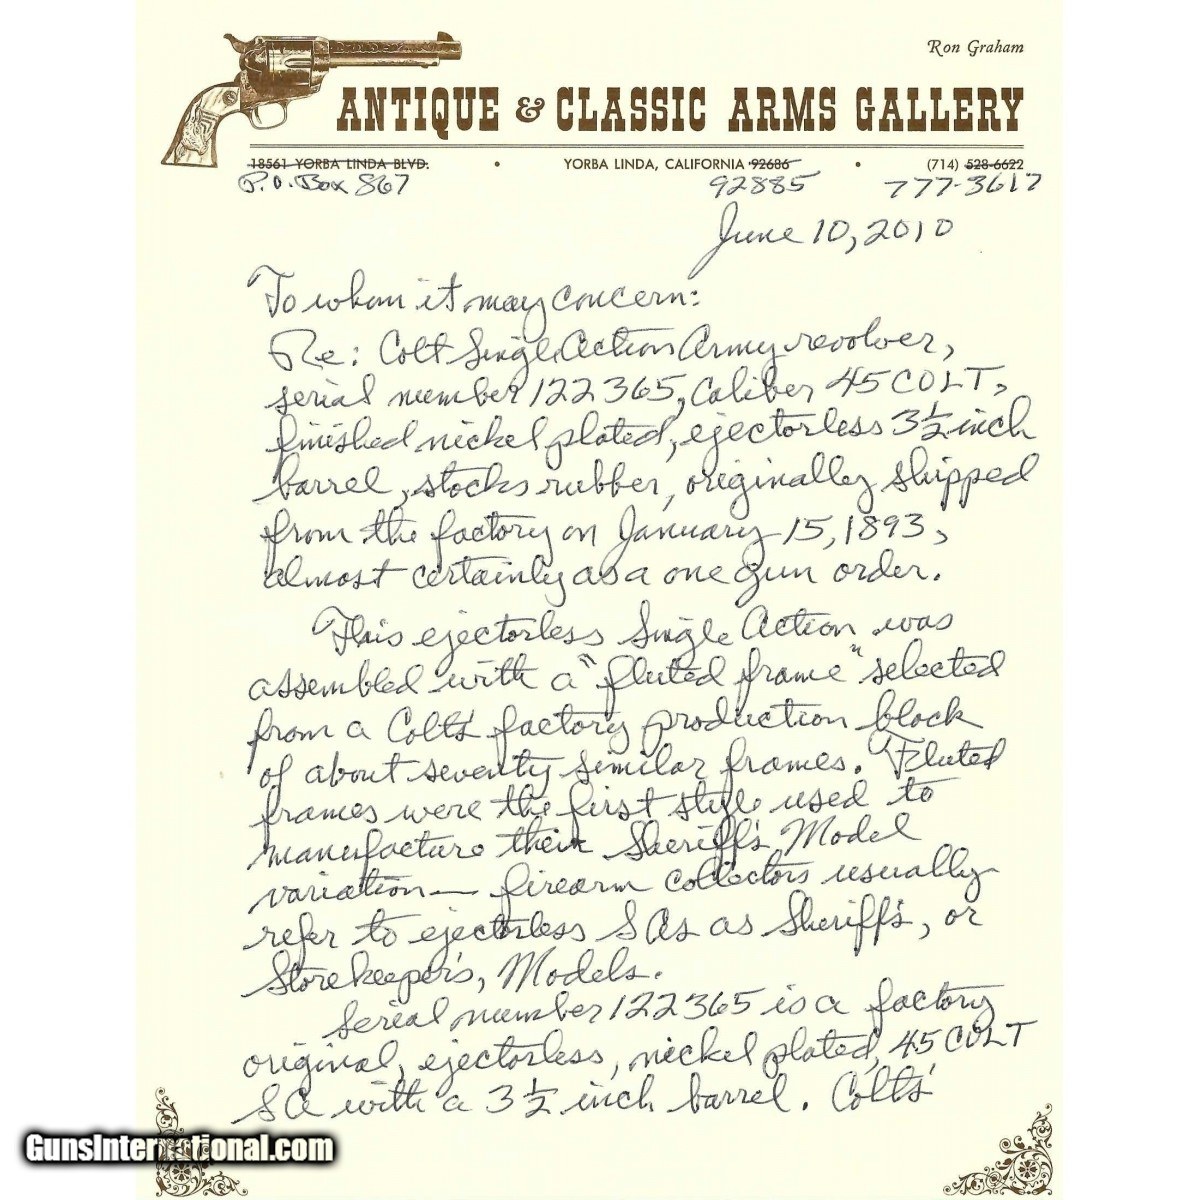 Ron Graham
ANTIQUE & CLASSIC ARMS GALLERY
18561 YORBA LINDA BLVD. • YORBA LINDA, CALIFORNIA 92686 • (714) 528-6622
P.O. Box 867 92885 777-3617
June 10, 2010
To whom it may concern:
Re: Colt Single Action Army revolver,
serial number 122365, caliber 45 COLT,
finished nickel plated, ejectorless 3 1/2 inch
barrel, stocks rubber, originally shipped
from the factory on January 15, 1893,
almost certainly as a one gun order.
This ejectorless Single Action was
assembled with a "fluted frame" selected
from a Colt's factory production block
of about seventy similar frames. Fluted
frames were the first style used to
manufacture their Sheriff's Model
variation — firearm collectors usually
refer to ejectorless SAs as Sheriff's, or
Storekeeper's, Models.
Serial number 122365 is a factory
original, ejectorless, nickel plated, 45 COLT
SA with a 3 1/2 inch barrel. Colts'
GunsInternational.com